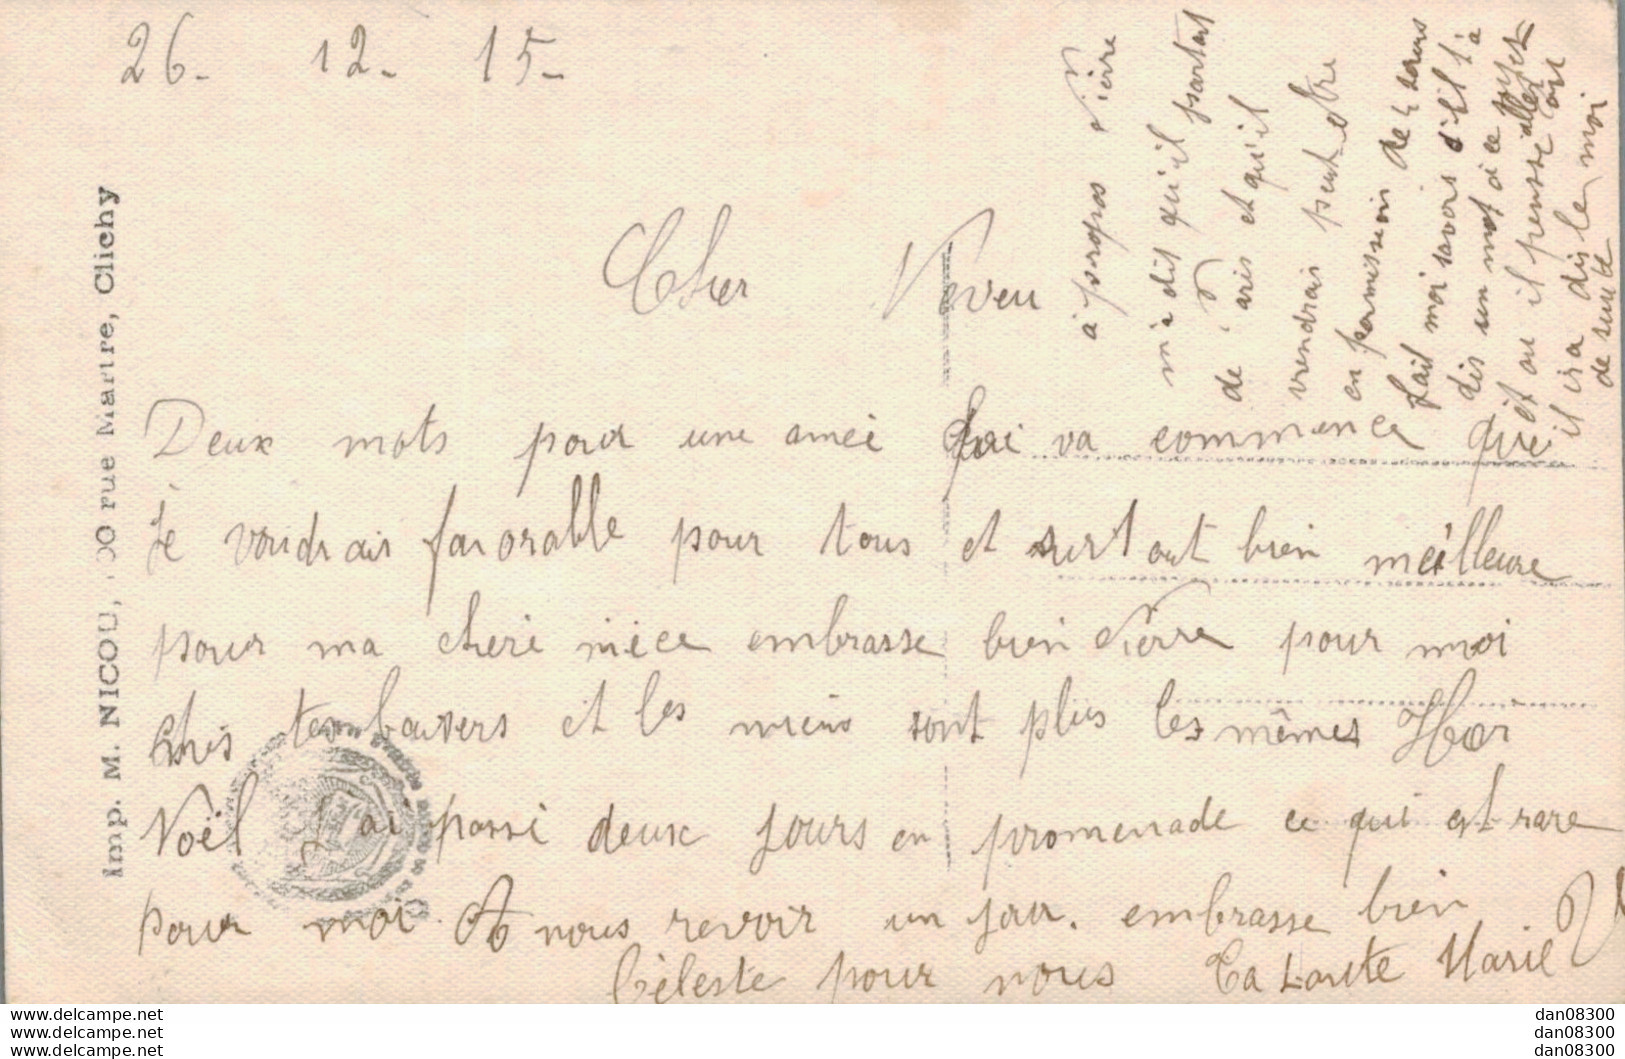 26- 12- 15-
Cher Neveu
Deux mots pour une ameé qui va commence que
Je voudrais favorable pour tous et surtout bien meilleure
pour ma cheri niece embrasse bien Pierre pour moi
tes baisers et les miens sont plus les mêmes Hier
Noël J'ai passé deux jours en promenade ce qui est rare
pour moi. A nous revoir un jour. embrasse bien
Céleste pour nous Ta tante Marie
à propos Pierre
m'a dit qu'il partart
de Paris et qu'il
viendrais peut etre
en permission de 4 Jours
fait moi savoir s'il t'à
dis un mot à ce sujet
et ou il pensse aller
il ira dis le moi
de suite
Imp. M. NICOU, rue Martre, Clichy
dan08300
dan08300
dan08300
dan08300
dan08300
dan08300